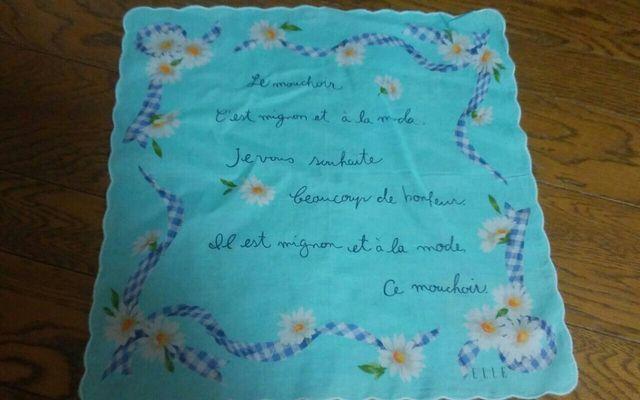 Le mouchoir
C'est mignon et à la moda.
Je vous souhaite
beaucoup de bonheur.
Il est mignon et à la mode,
Ce mouchoir.
ELLE